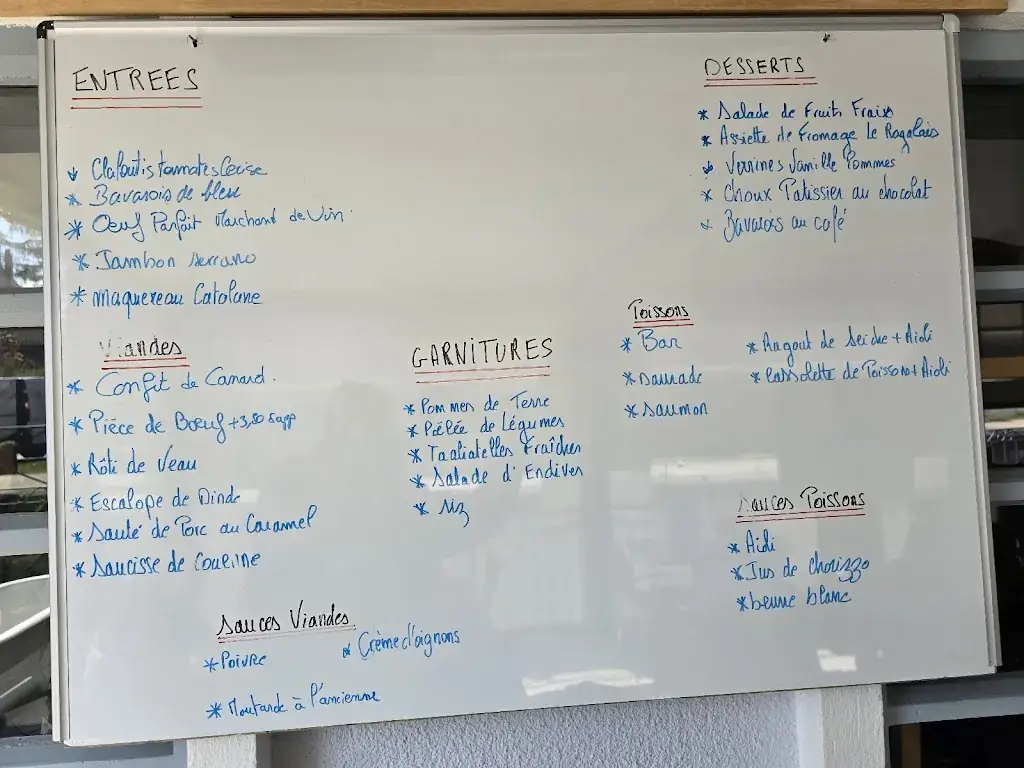 ENTREES
Clafoutis tomates Cerise
Bavarois de bleu
Oeuf Parfait Marchand de Vin
Jambon serrano
Maquereau Catalane
Viandes
Confit de Canard.
Pièce de Boeuf +3,50 supp
Rôti de Veau
Escalope de Dinde
Sauté de Porc au Caramel
Saucisse de Couenne
Sauces Viandes
Poivre
Crème d'oignons
Moutarde à l'ancienne
GARNITURES
Pommes de Terre
Poêlée de Légumes
Tagliatelles Fraîches
Salade d'Endives
riz
DESSERTS
Salade de Fruits Frais
Assiette de Fromage Le Ragalais
Verrines Vanille Pommes
Choux Patissier au chocolat
Bavarois au café
Poissons
Bar
daurade
saumon
Ragout de Seiche + Aioli
Cassolette de Poisson + Aioli
Sauces Poissons
Aioli
Jus de chorizzo
beurre blanc